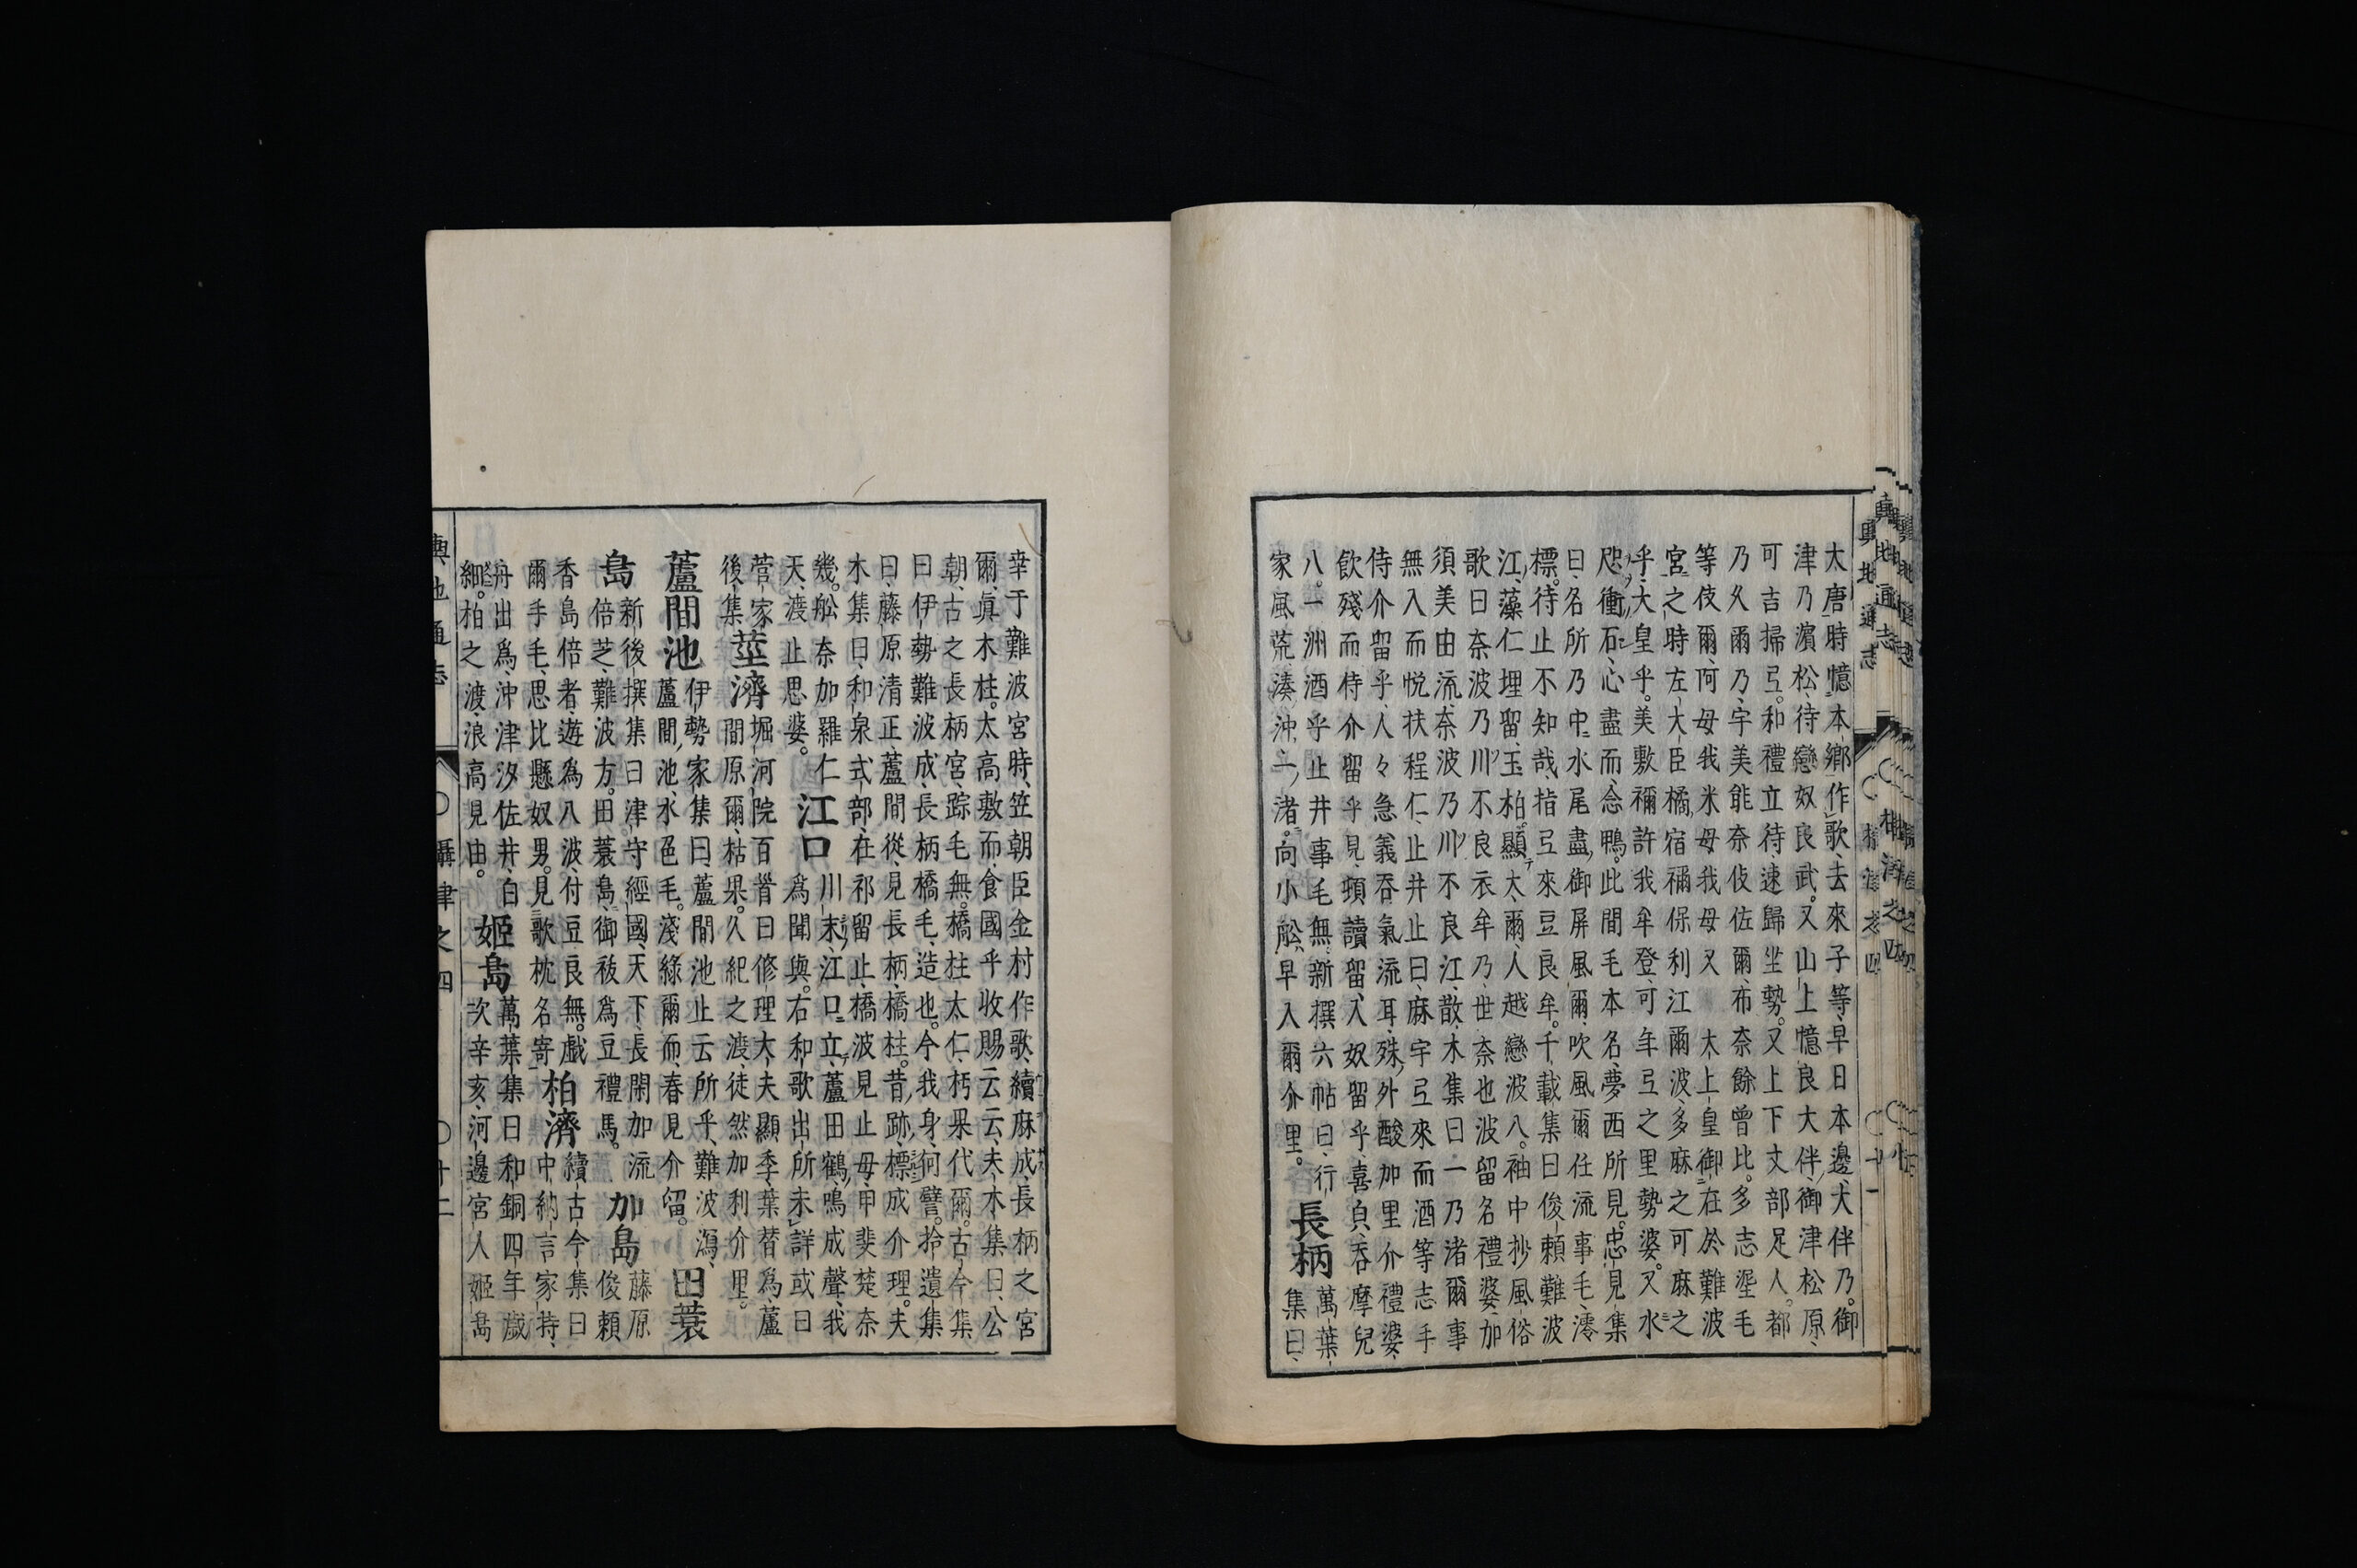 大唐時憶本鄉作歌、去來子等、早日本邊、大伴乃。御
津乃濱松、待戀奴良武。又山上憶良大伴、御津松原、
可吉掃弖。和禮立待、速歸坐勢。又上下丈部足人。都
乃久爾乃、宇美能奈伎佐爾、布奈餘曾比。多志埿毛
等伎爾、阿母我米母我母又 太上皇御在於難波
宮之時左大臣橘宿禰保利江爾波、多麻之可麻之
乎、大皇乎。美敷禰許我牟登、可年弖之里勢婆。又水
咫衝石、心盡而、念鴨。此間毛本名、夢西所見。忠見集
曰、名所乃中水尾盡、御屏風爾、吹風爾任流事毛、澪
標。待止不知哉、指弖來豆良牟。千載集曰俊賴難波
江、藻仁埋留、玉柏。顯太爾、人越戀波八。袖中抄風俗
歌曰奈波乃川不良衣牟乃、世奈也波留名禮婆、加
須美由流、奈波乃川、不良江、散木集曰一乃渚爾事
無入而悅扶程仁、止井止曰、麻宇弖來而酒等志手
侍介留乎、人々急義吞氣流耳、殊外酸加里介禮婆、
飲殘而侍介留乎見、頻讀留、入奴留乎喜負、吞摩兒
八。一洲酒乎止井事毛無、新撰六帖曰、行
家風荒湊沖一、渚。向小舩、早入爾介里。
長柄
萬葉
集曰、
幸于難波宮時、笠朝臣金村作歌、續麻成、長柄之宮
爾、眞木柱。太高敷而、食國乎收賜云云、夫木集曰、公
朝、古之長柄宮、踪毛無。橋柱太仁、朽果代爾。古今集
曰伊勢難波成、長柄橋毛、造也。今我身、何譬。拾遺集
曰、藤原清正、蘆間從、見長柄、橋柱。昔跡、標成介理。夫
木集曰、和泉式部、在祁留止、橋波見止毋、甲斐楚奈
幾。舩奈加羅仁
江口
川末、江口立、蘆田鶴、鳴成聲、我
天、渡止思婆。
爲聞與。右和歌出所未詳或曰
菅家
莖濟
堀河院百首曰修理大夫顯季、葉替爲、蘆
後集
間原爾、枯果。久紀之渡、徒然加利介里。
蘆間池
伊勢家集曰、蘆間池止云所乎、難波瀉、
蘆間、池、水色毛。淺綠爾而、春見介留。
田蓑
島
新後撰集曰津守經國、天下、長閑加流
倍芝、難波方。田蓑島、御祓爲豆禮馬。
加島
藤原
俊賴
香島倍者、遊爲八波、付豆良無。戲
爾手毛、思比懸奴男。見歌枕名寄
柏濟
續古今集曰
中納言家持、
舟出爲、沖津汐佐井、白
細。柏之渡、浪高見由。
姬島
萬葉集曰和銅四年歲
次辛亥、河邊宮人姬島
輿地通志
攝津之四
廿二